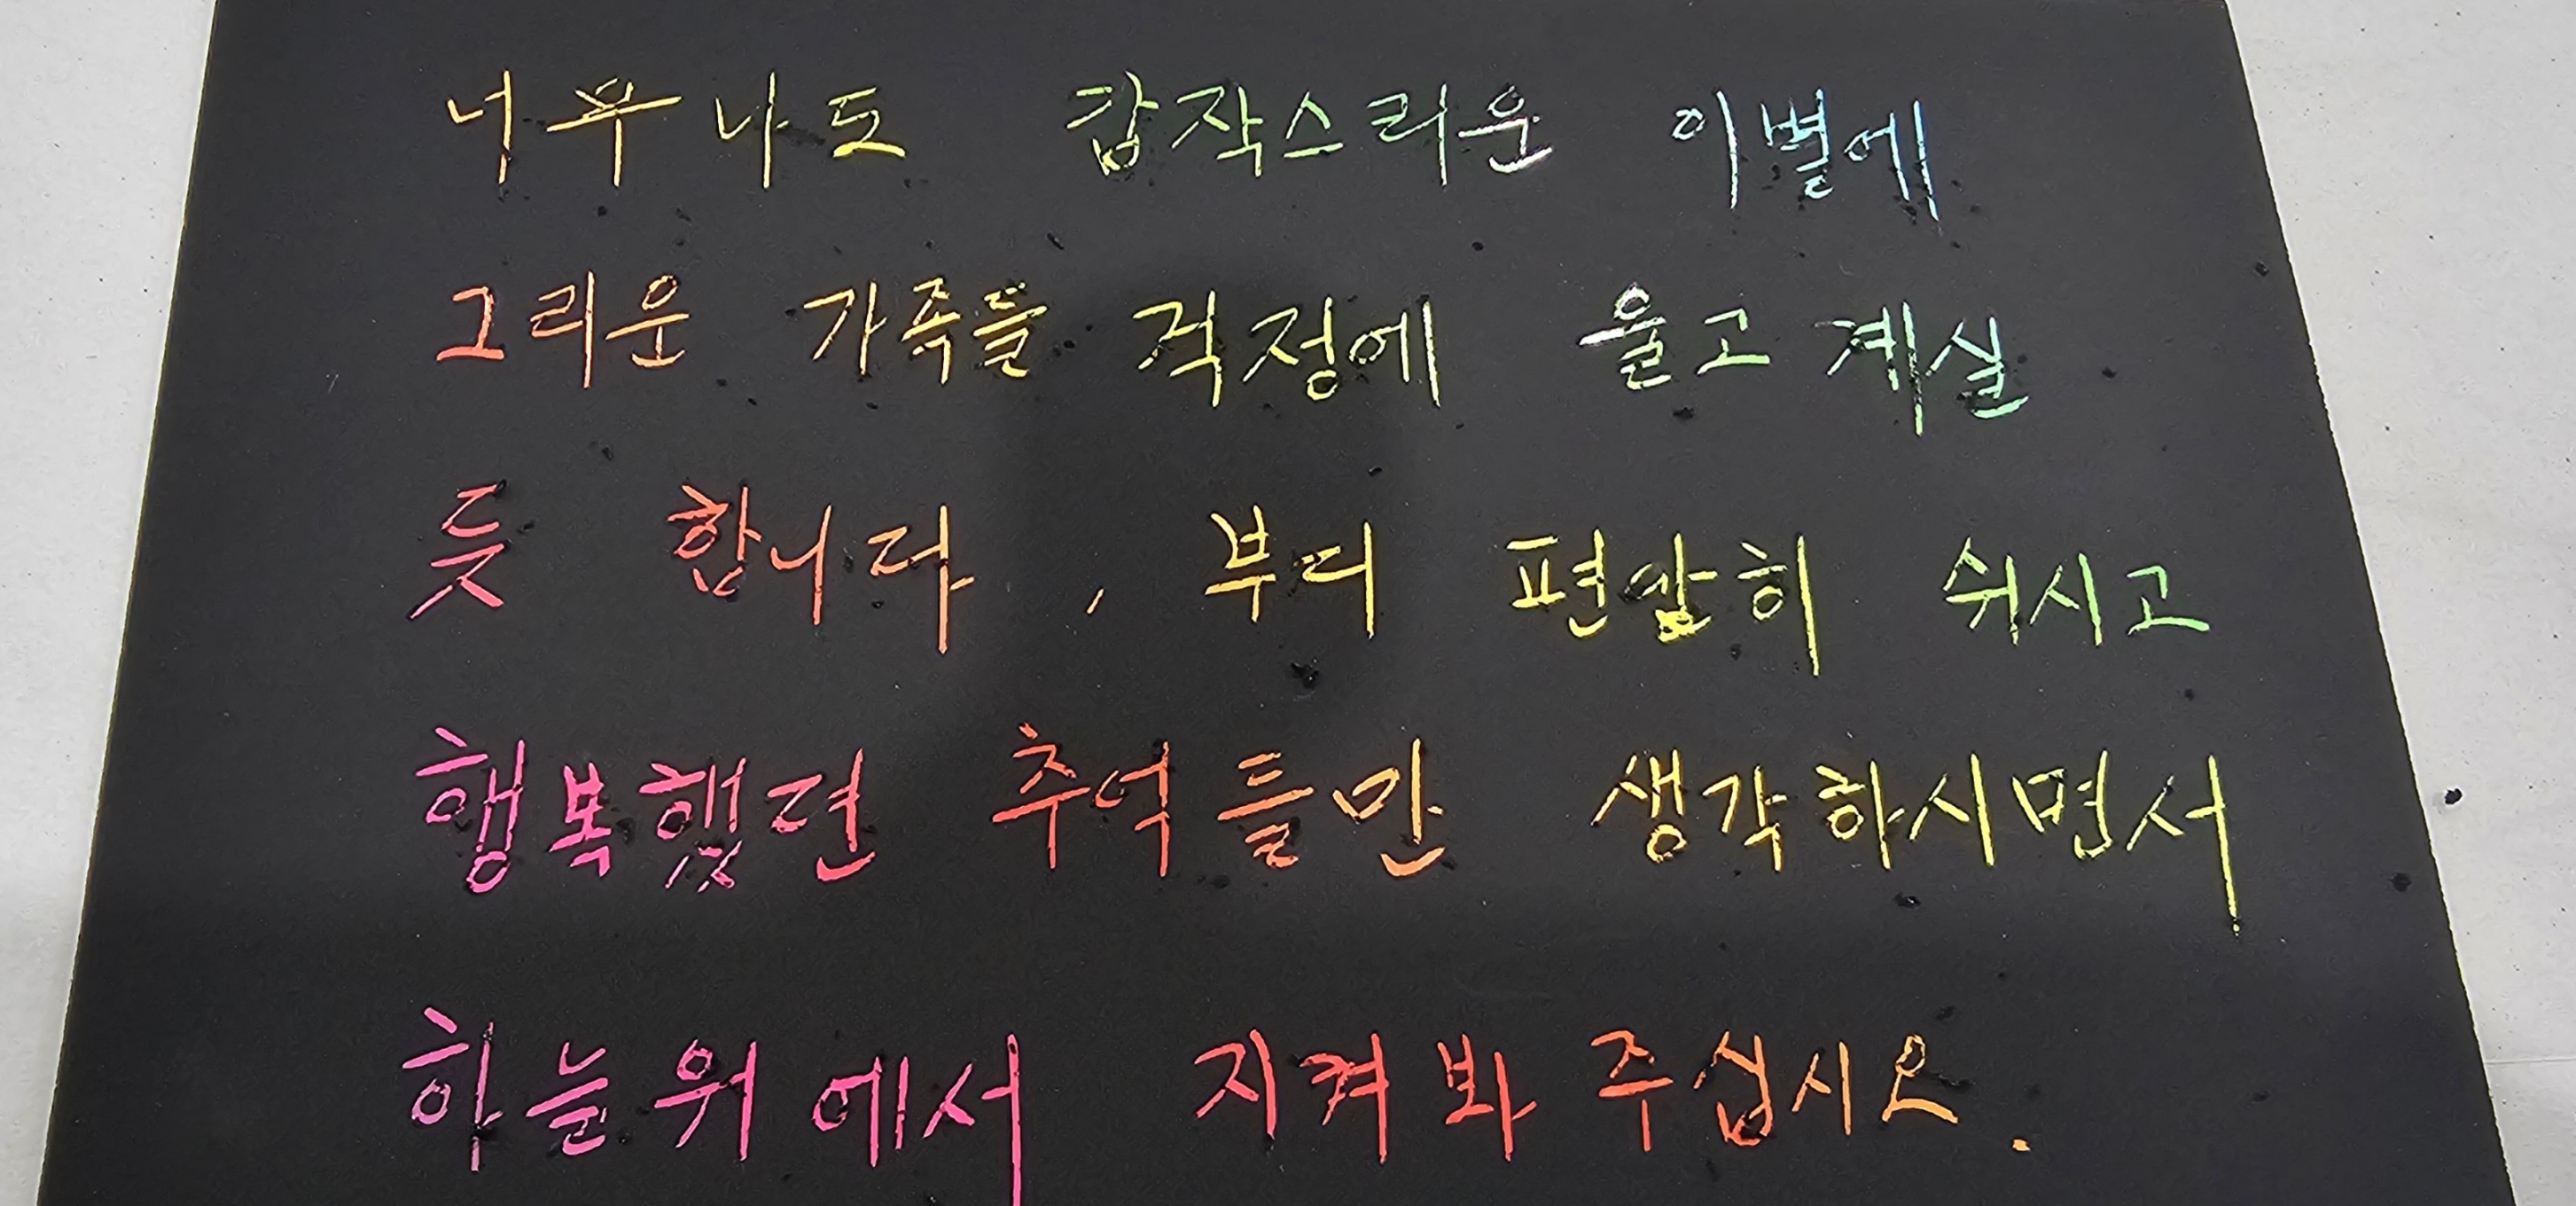 너무나도 갑작스러운 이별에
그리운 가족들 걱정에 울고 계실
듯 합니다, 부디 편안히 쉬시고
행복했던 추억들만 생각하시면서
하늘위에서 지켜봐 주십시오.